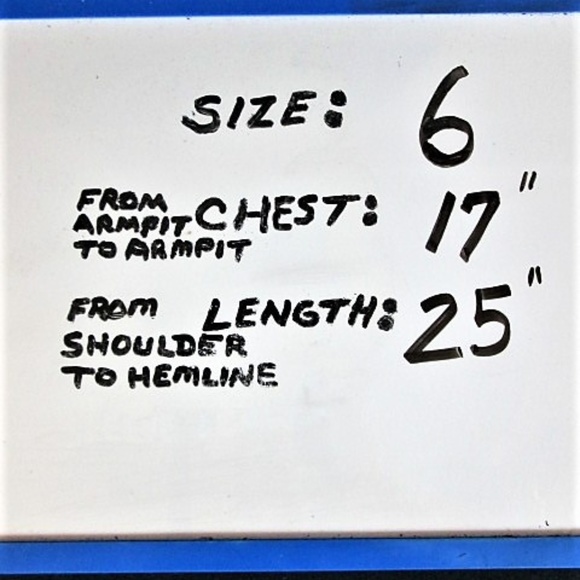 SIZE: 6
FROM
ARMPIT CHEST: 17"
TO ARMPIT
FROM LENGTH: 25"
SHOULDER
TO HEMLINE